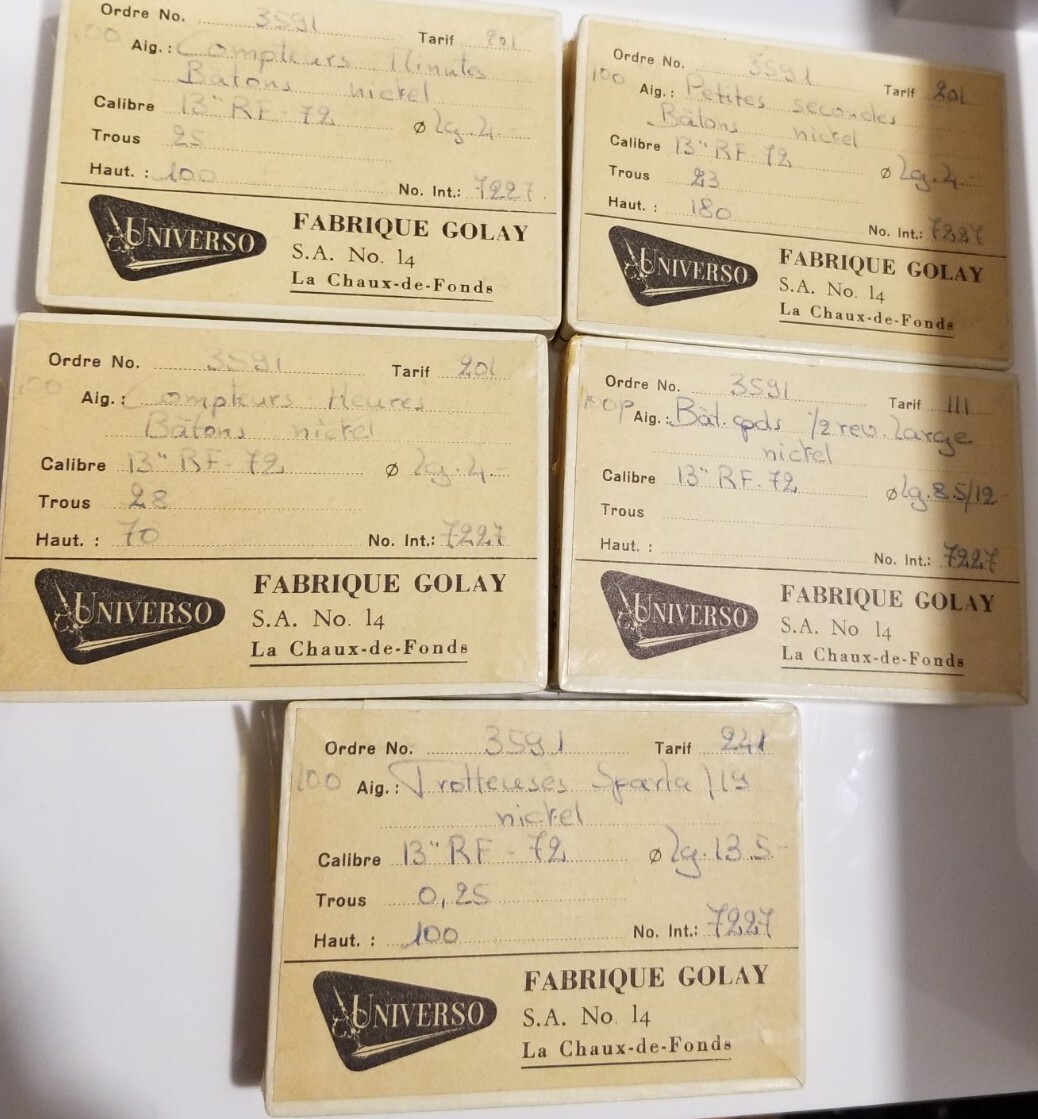 Ordre No. 3591 Tarif 201
100 Aig.: Compteurs Minutes
Bâtons nickel
Calibre 13"' RF-72 ø lg. 4.-
Trous 25
Haut. : 100 No. Int.: 7227
UNIVERSO
FABRIQUE GOLAY
S.A. No. 14
La Chaux-de-Fonds
Ordre No. 3591 Tarif 201
100 Aig.: Petites secondes
Bâtons nickel
Calibre 13"' RF-72 ø lg. 4.-
Trous 23
Haut. : 180 No. Int.: 7227
UNIVERSO
FABRIQUE GOLAY
S.A. No. 14
La Chaux-de-Fonds
Ordre No. 3591 Tarif 201
100 Aig.: Compteurs Heures
Bâtons nickel
Calibre 13"' RF-72 ø lg. 4.-
Trous 28
Haut. : 70 No. Int.: 7227
UNIVERSO
FABRIQUE GOLAY
S.A. No. 14
La Chaux-de-Fonds
Ordre No. 3591 Tarif 111
100P Aig.: Bât. gds 1/2 rev. large
nickel
Calibre 13"' RF-72 ø lg. 8.5/12-
Trous
Haut. : No. Int.: 7227
UNIVERSO
FABRIQUE GOLAY
S.A. No 14
La Chaux-de-Fonds
Ordre No. 3591 Tarif 241
100 Aig.: Trotteuses Sparta/19
nickel
Calibre 13"' RF-72 ø lg. 13.5-
Trous 0,25
Haut. : 100 No. Int.: 7227
UNIVERSO
FABRIQUE GOLAY
S.A. No. 14
La Chaux-de-Fonds